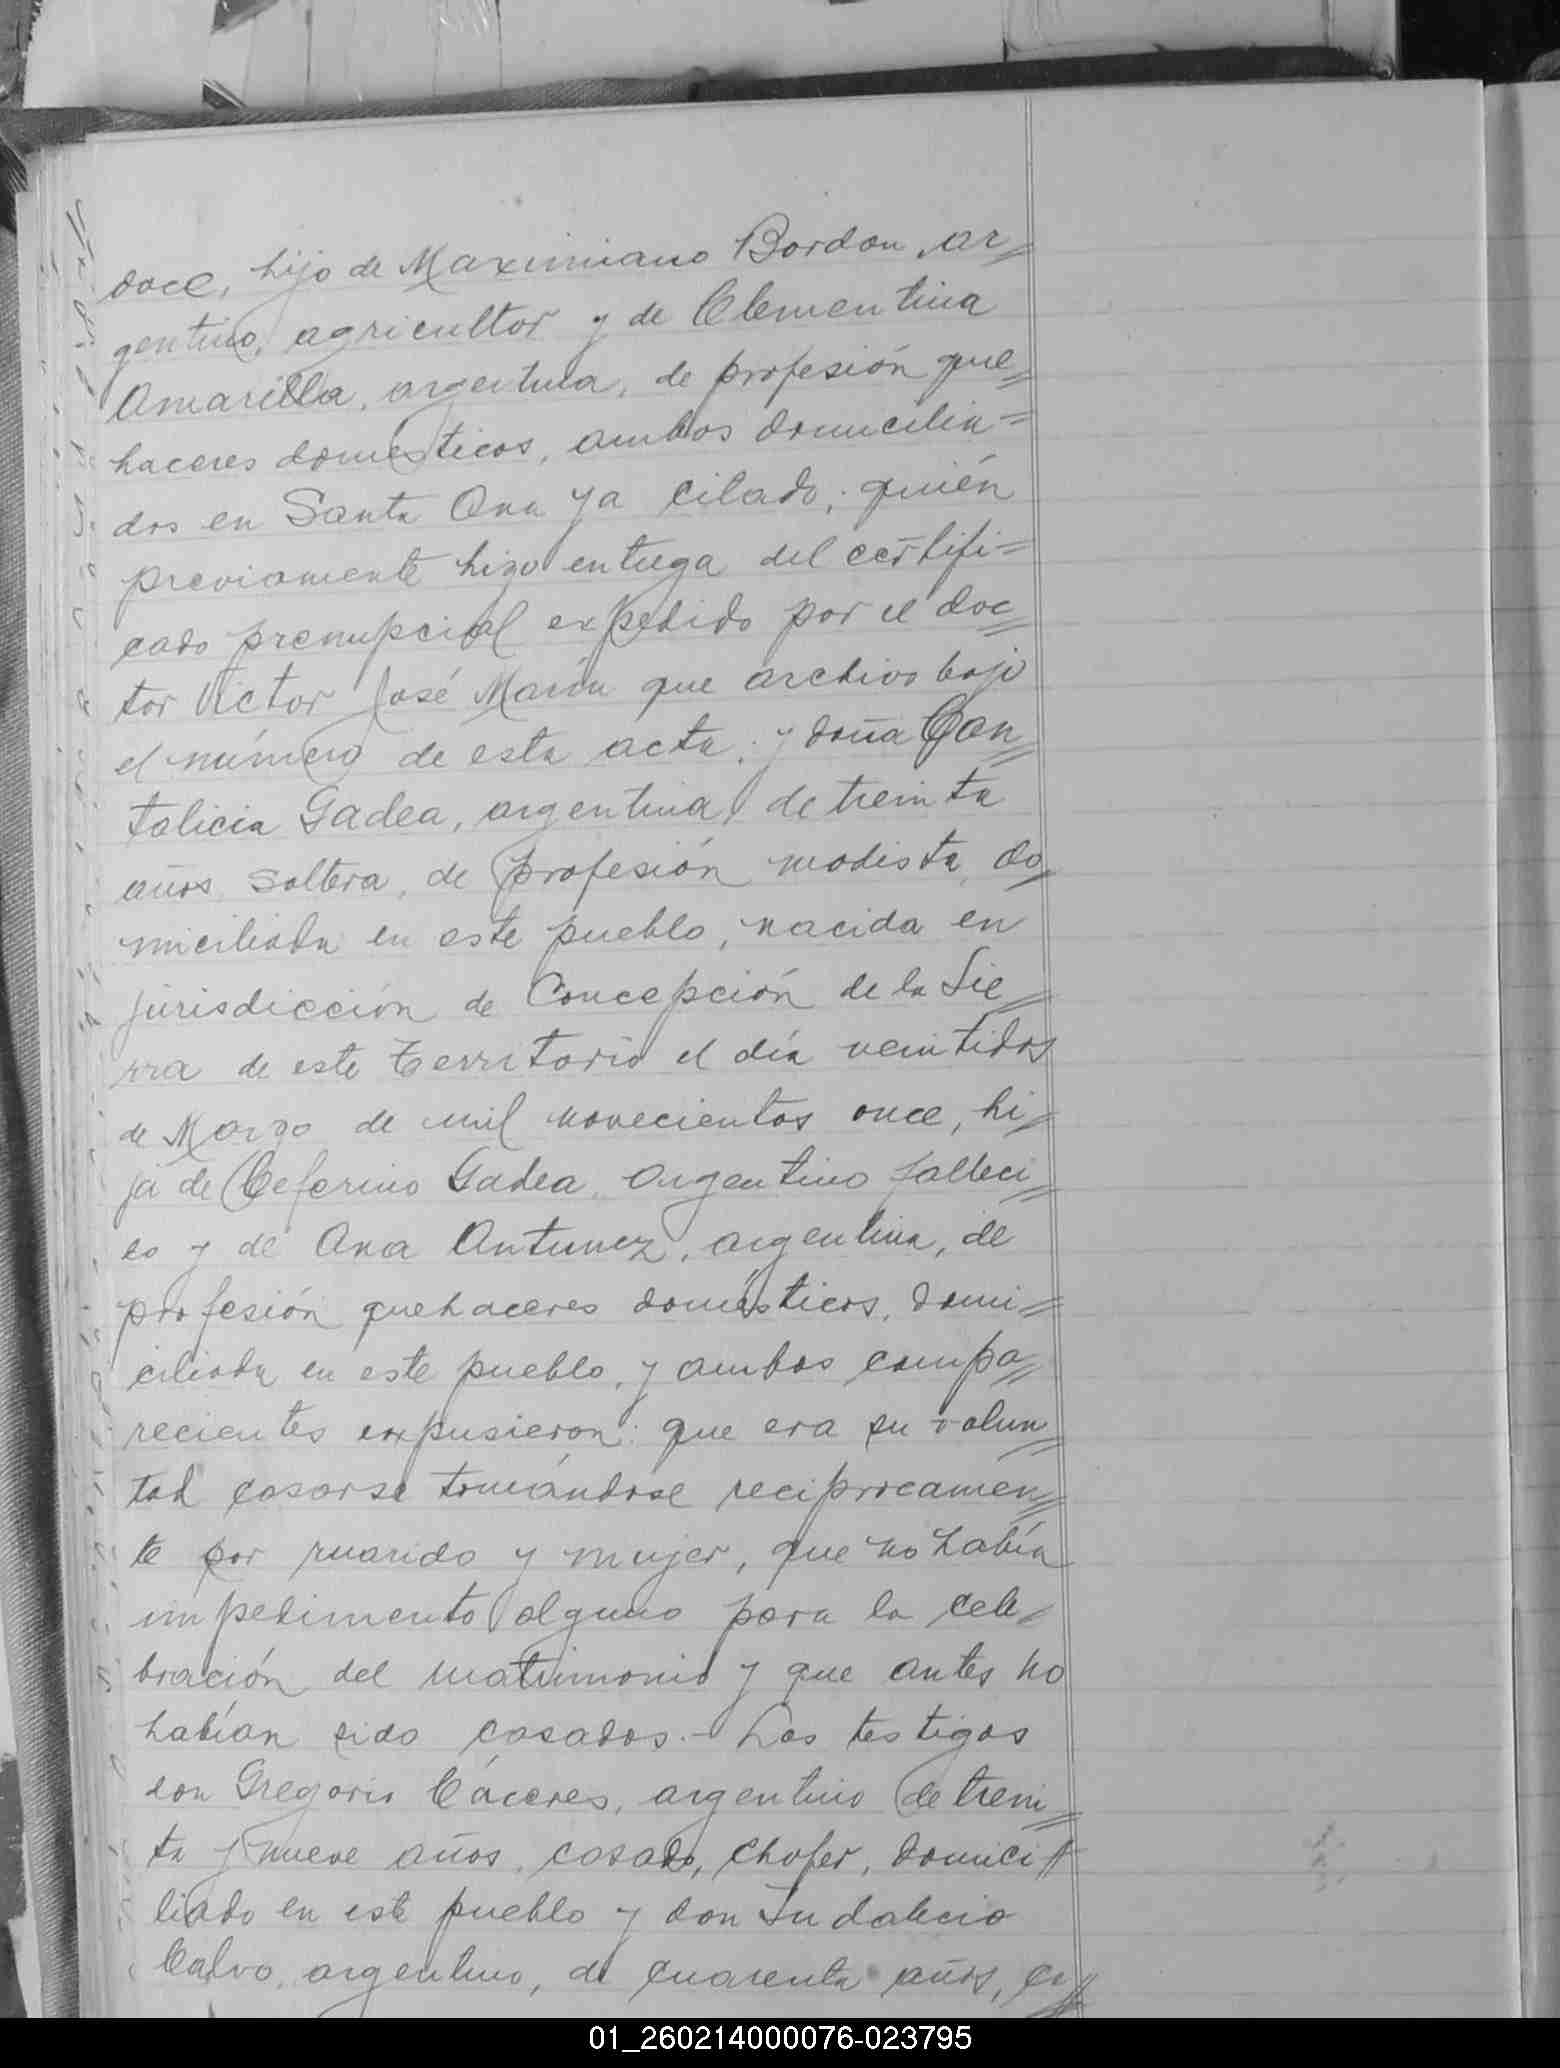 doce, hijo de Maximiano Bordon, ar=
gentino, agricultor y de Clementina
Amarilla, argentina, de profesión que=
haceres domésticos, ambos domicilia=
dos en Santa Ana ya citado; quién
previamente hizo entrega del certifi=
cado prenupcial expedido por el doc=
tor Victor José Marin que archivo bajo
el número de esta acta; y doña Can=
talicia Gadea, argentina, de treinta
años, soltera, de profesión modista, do=
miciliada en este pueblo, nacida en
jurisdicción de Concepción de la Sie=
rra de este Territorio el día veintidos
de Marzo de mil novecientos once, hi=
ja de Ceferino Gadea, argentino falleci=
do y de Ana Antunez, argentina, de
profesión quehaceres domésticos, domi=
ciliada en este pueblo, y ambos compa=
recientes expusieron: que era su volun=
tad casarse tomándose reciprocamen=
te por marido y mujer, que no había
impedimento alguno para la cele=
bración del matrimonio y que antes no
habían sido casados.- Los testigos
don Gregorio Cáceres, argentino de trein=
ta y nueve años, casado, chofer, domici=
liado en este pueblo y don Indalecio
Calvo, argentino, de cuarenta años, ca=
01_260214000076-023795